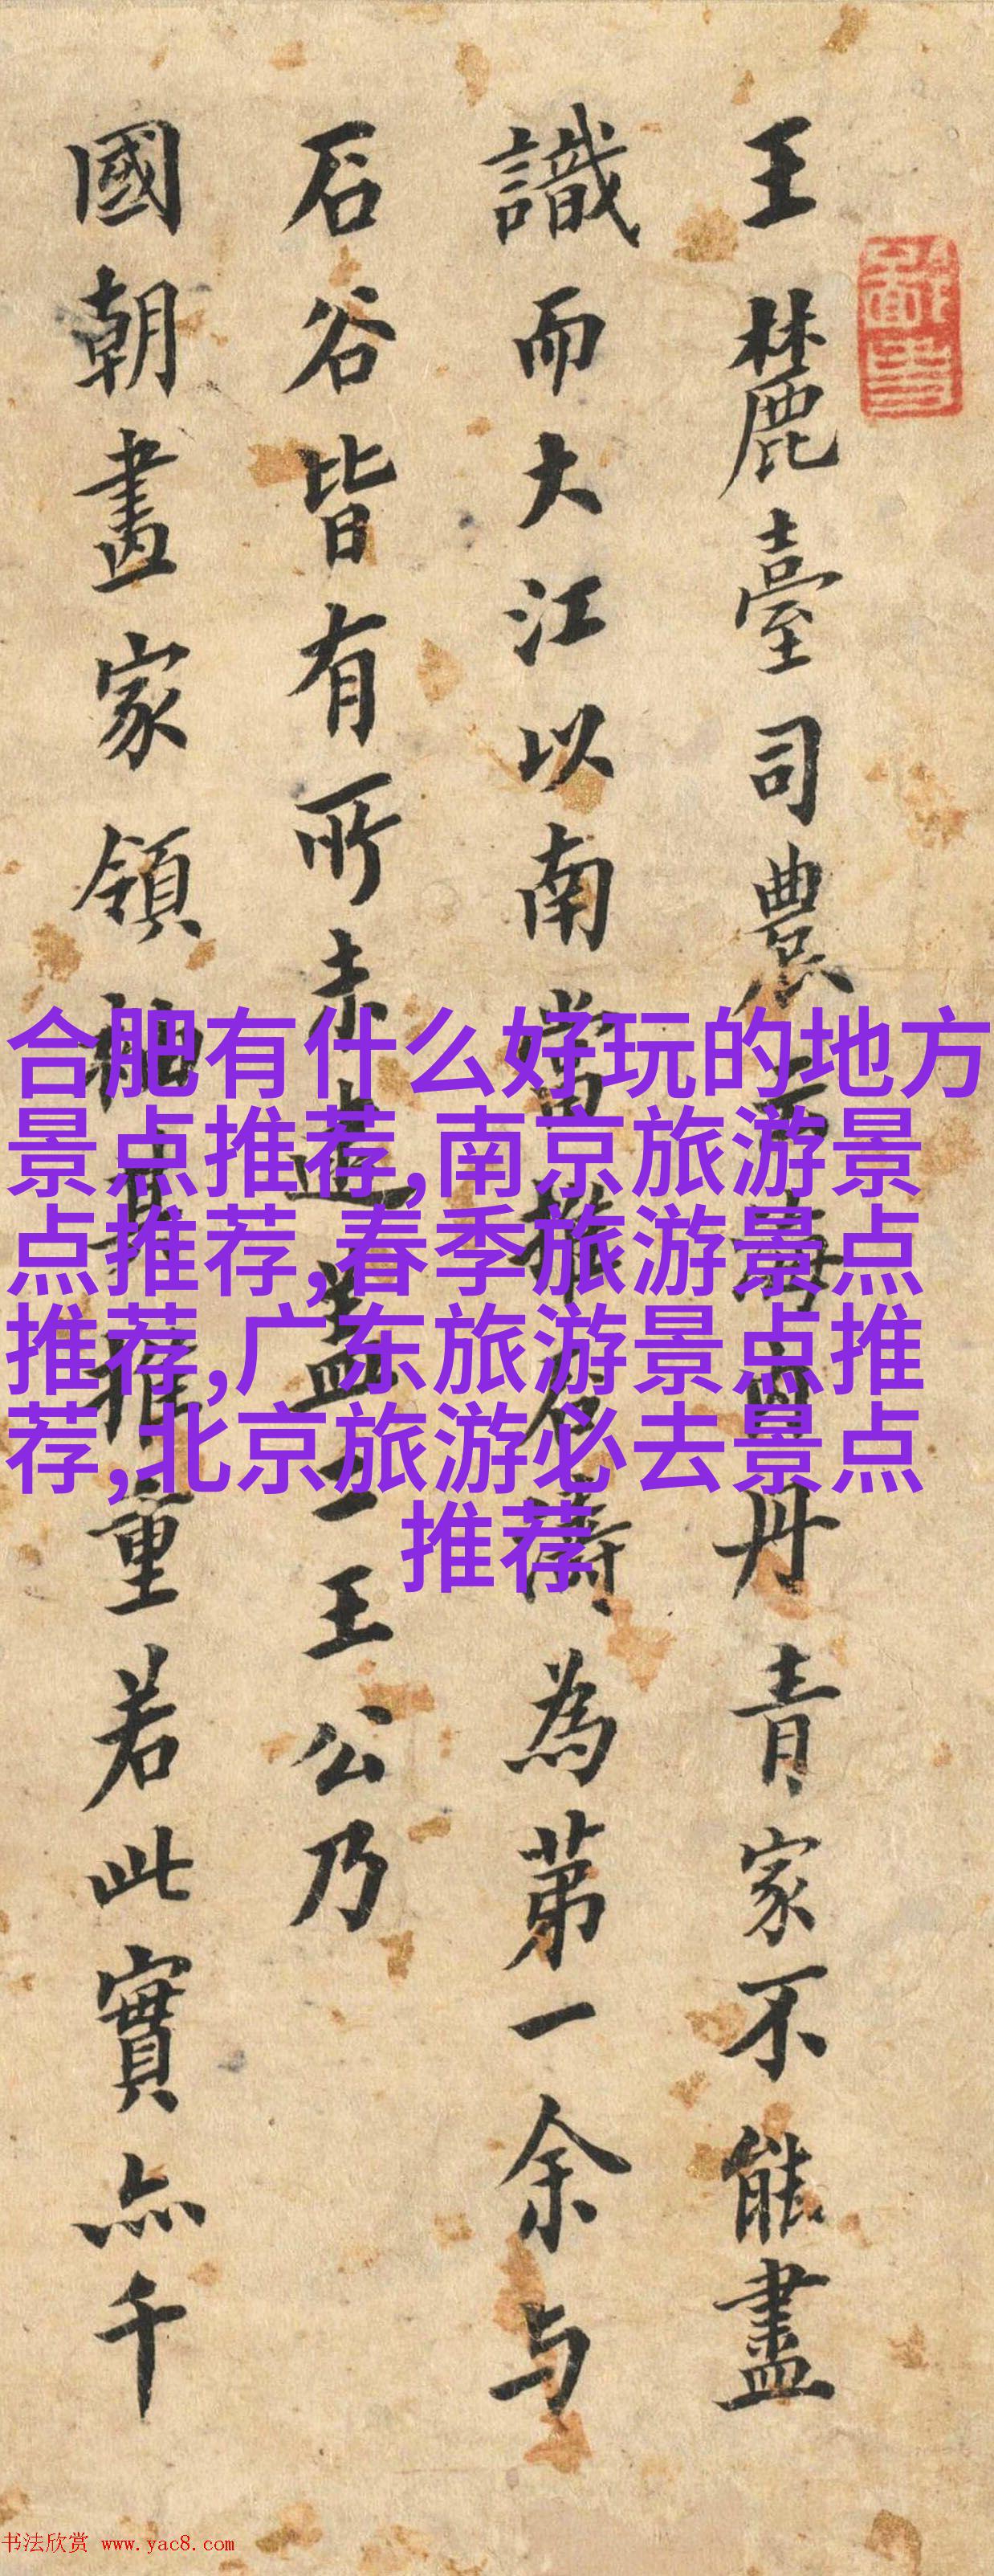 王麓臺司農
丹青家不能盡
識而大江以南當推石濤為第一余与
石谷皆有所未逮盖二王公乃
國朝畫家領袖其推重若此實亦千
合肥有什么好玩的地方
景点推荐,南京旅游景
点推荐,春季旅游景点
推荐,广东旅游景点推
荐,北京旅游必去景点
推荐
书法欣赏 www.yac8.com